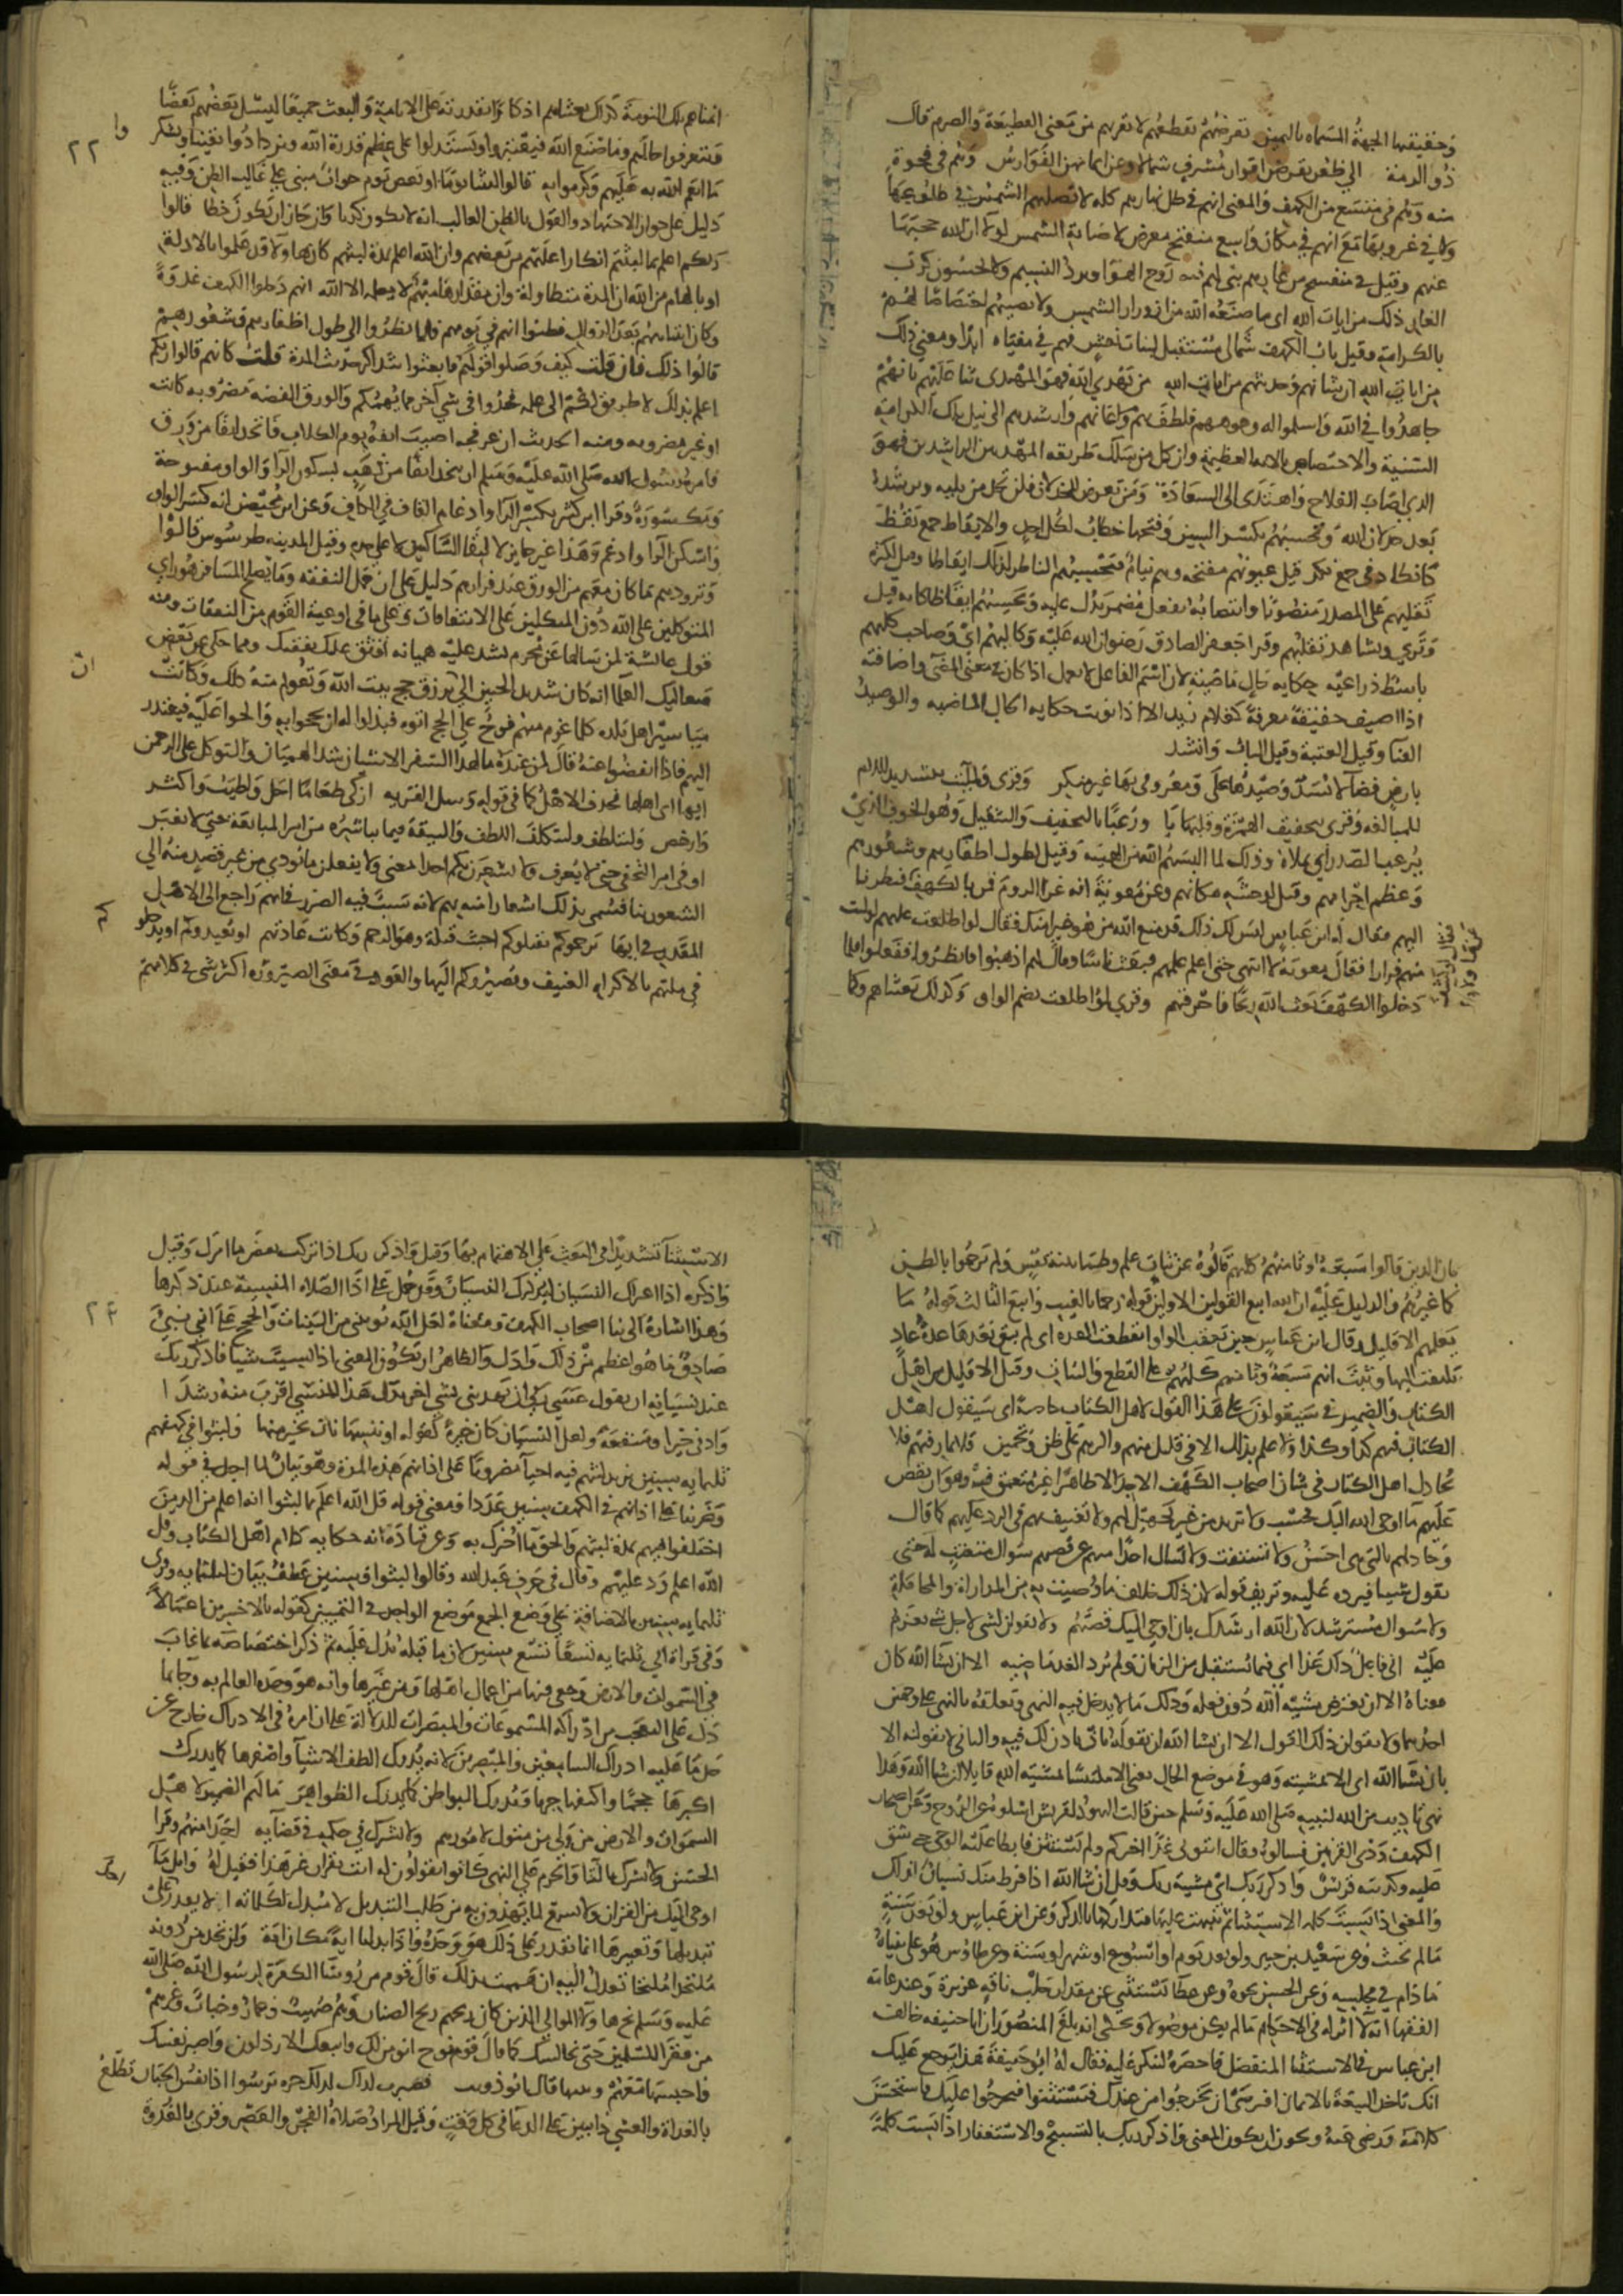 وحقيقتها الجهة المسماه باليمين تقرضهم تقطعهم لا تقربهم من معنى القطيعة والصرم قال
ذو الرمة الى ظعن يقرضن اقواز مشرف شمالا وعن ايمانهن الفوارس وهم في فجوة
منه وهم في متسع من الكهف والمعنى انهم في ظل نهارهم كله لا تصيبهم الشمس في طلوعها
ولا في غروبها مع انهم في مكان واسع منفتح معرض لاصابة الشمس لولا ان الله حجبها
عنهم وقيل في منفسح من غارهم ينالهم فيه روح الهوا وبرد النسيم ولا يحسون كرب
الغار ذلك من ايات الله اى ما صنعه الله من ازورار الشمس ولا تصيبهم اختصاصا لهم
بالكرامة وقيل باب الكهف شمالى مستقبل لبنات نعش فهم في مقناه ابدا ومعنى ذلك
من ايات الله ان شانهم وحديثهم من ايات الله من يهدي الله فهو المهتدى ثنا عليهم بانهم
جاهدوا في الله واسلموا له وجوههم فلطف بهم واعانهم وارشدهم الى نيل تلك الكرامة
السنية والاختصاص بالاية العظيمة وان كل من سلك طريقه المهتدين الراشدين فهو
الذي اصاب الفلاح واهتدى الى السعادة ومن تعرض للخذلان فلن تجد من يليه ويرشده
بعد خذلان الله وتحسبهم بكسر السين وفتحها خطاب لكل احد والايقاظ جمع يقظ
كانكاد في جمع نكد قيل عيونهم مفتحه وهم نيام فتحسبهم الناظر لذلك ايقاظا وقيل لكثره
تقلبهم على المصدر منصوبا وانتصابه بفعل مضمر يدل عليه وتحسبهم ايقاظا كانه قيل
وترى وتشاهد تقلبهم وقرا جعفر الصادق رضوان الله عليه وكالبهم اى وصاحب كلبهم
باسط ذراعيه حكايه حال ماضيه لان اسم الفاعل لا يعمل اذا كان في معنى المضي واضافته
اذا اضيف حقيقة معرفة كغلام زيد الا اذا نويت حكايه الحال الماضيه والوصيد
الفنا وقيل العتبة وقيل الباب وانشد
بارض فضآ لا يسد وصيدها علي ومعروفى بها غير منكر وقرى ولملئت بتشديد اللام
للمبالغه وقرى بتخفيف الهمزة وقلبها يا ورعبا بالتخفيف والتثقيل وهو الخوف الذي
يرعب الصدر اى يملاه وذلك لما البسهم الله من الهيبه وقيل لطول اظفارهم وشعورهم
وعظم اجرامهم وقيل لوحشه مكانهم وعن معوية انه غزا الروم فمر بالكهف فنظرنا
اليهم فقال له ابن عباس ليس لك ذلك قد منع الله من هو خير منك فقال لو اطلعت عليهم لوليت
منهم فرارا فقال معوية لا انتهى حتى اعلم علمهم فبعث ناسا وقال لهم اذهبوا فانظروا ففعلوا فلما
دخلوا الكهف بعث الله ريحا فاحرقتهم وقرى لوُ اطلعت بضم الواو وكذلك بعثناهم وكما
انمناهم تلك النومة كذلك بعثناهم اذكارا بقدرته على الانامة والبعث جميعا ليسئل بعضهم بعضا
فيتعرفوا حالهم وما صنع الله فيعتبروا ويستدلوا على عظم قدرة الله ويزدادوا يقينا ويشكر
وا
٢٢
ما انعم الله به عليهم وكرموا به قالوا لبثنا يوما او بعض يوم جواب مبنى على غالب الظن وفيه
دليل على جواز الاجتهاد والقول بالظن الغالب انه لا يكون كذبا وان جاز ان يكون خطا قالوا
ربكم اعلم بما لبثتم انكارا عليهم من بعضهم وان الله اعلم بمدة لبثهم كان هاولا قد علموا بالادلة
او بالهام من الله ان المدة متطاولة وان مقدارها مبهم لا يعلمه الا الله انهم دخلوا الكهف غدوة
وكان انتباههم بعد الزوال فظنوا انهم في يومهم فلما نظروا الى طول اظفارهم وشعورهم
قالوا ذلك فان قلت كيف وصلوا قولهم فابعثوا بتذاكر حديث المدة قلت كانهم قالوا ربكم
اعلم بذلك لا طريق لكم الى علمه فخذوا في شي اخر مما يهمكم والورق الفضه مضروبه كانت
او غير مضروبه ومنه الحديث ان عرفجه اصيب انفه يوم الكلاب فاتخذ انفا من ورق
فامره رسول الله صلى الله عليه وسلم ان يتخذ انفا من ذهب بسكون الرآ والواو مفتوحة
ومكسورة وقرا ابن كثير بكسر الرآ وادغام القاف في الكاف وعن ابن محيصن انه كسر الواو
واسكن الرآ وادغم وهذا غير جايز لالتقا الساكنين لا على حده وقيل المدينه طرسوس قالوا
وتزودهم ما كان معهم من الورق عند فرارهم دليل على ان حمل النفقه وما يصلح المسافر هو راى
المتوكلين على الله دون المتكلين على الاتفاقات وعلى ما في اوعية القوم من النفقات ومنه
قول عائشة لمن سالها عن محرم يشد عليه هميانه اوثق عليك نفقتك ومما حكى عن بعض
صعاليك العلما انه كان شديد الحنين الى ان يرزق حج بيت الله وتعولم منه ذلك وكانت
ان
مياسير اهل بلده كلما عزم منهم فوج على الحج اتوه فبذلوا له ان يحجوا به والحوا عليه فيعتذر
اليهم فاذا انفضوا عنه قال لمن عنده ما لهذا السفر الا شيان شد الهميان والتوكل على الرحمن
ايها اى اهلها فحذف الاهل كما في قوله وسل القريه ازكى طعاما احل واطيب واكثر
وارخص وليتلطف وليتكلف اللطف والنيقة فيما يباشره من امر المبايعة حتى لا يغبن
او في امر التخفى حتى لا يعرف ولا يشعرن بكم احدا معنى ولا يفعلن ما يودي من غير قصد منه الى
الشعور بنا فسمى بذلك اشعارا منه بهم لانه سبب فيه الضمير في انهم راجع الى الاهل
المقدر في ايها يرجموكم يقتلوكم اخبث قتلة وهو الرجم وكانت عادتهم او يعيدوكم او يدخلو
كم
في ملتهم بالاكراه العنيف ويصيروكم اليها والعود في معنى الصيرورة اكثر شى في كلامهم
بان الذين قالوا سبعة وثامنهم كلبهم قالوه عن ثبات علم وطمانينة نفس ولم يرجموا بالظن
كما غيرهم والدليل عليه ان الله اتبع القولين الاولين قوله رجما بالغيب واتبع الثالث قوله ما
يعلمهم الا قليل وقال ابن عباس حين وقعت الواو انقطعت العدة اى لم يبق بعدها عدة عاد
يلتفت اليها وثبت انهم سبعة وثامنهم كلبهم على القطع والثبات وقيل الا قليل من اهل
الكتاب والضمير في سيقولون على هذا القول لاهل الكتاب خاصة اى سيقول اهل
الكتاب فيهم كذا وكذا ولا علم بذلك الا في قليل منهم واكثرهم على ظن وتخمين فلا تمار فيهم فلا
تجادل اهل الكتاب في شان اصحاب الكهف الا جدالا ظاهرا غير متعمق فيه وهو ان تقص
عليهم ما اوحى الله اليك فحسب ولا تزيد من غير تجهيل لهم ولا تعنيف بهم في الرد عليهم كما قال
وجادلهم بالتي هى احسن ولا تستفت ولا تسال احدا منهم عن قصهم سوال متعنت له حتى
يقول شيا فيرده عليه وتزيف قوله لان ذلك خلاف ما وصيت به من المداراة والمجاملة
ولا سوال مسترشد لان الله ارشدك بان اوحى اليك قصتهم ولا تقولن لشى لاجل شى تعزم
عليه انى فاعل ذلك غدا اي فيما يستقبل من الزمان ولم يرد الغد خاصه الا ان يشا الله كان
معناه الا ان يعترض مشية الله دون فعله وذلك ما لا يدخل فيه النهى وتعلقه بالنهى على وجهين
احدهما ولا تقولن ذلك القول الا ان يشا الله ان تقوله بان ياذن لك فيه والثانى لا تقولنه الا
بان يشا الله اى الا بمشيته وهو في موضع الحال يعنى الا ملتبسا بمشية الله قايلا ان شا الله وهذا
نهى تاديب من الله لنبيه صلى الله عليه وسلم حين قالت اليهود لقريش اسلوه عن الروح وعن اصحاب
الكهف وذى القرنين فسالوه وقال ائتونى غدا اخبركم ولم يستثن فابطا عليه الوحى حتى شق
عليه وكذبته قريش واذكر ربك اى مشية ربك وقل ان شا الله اذا فرط منك نسيان لذلك
والمعنى اذا نسيت كلمه الاستثنا ثم تنبهت عليها فتداركها بالذكر وعن ابن عباس ولو بعد سنة
ما لم تحنث وعن سعيد بن جبير ولو بعد يوم او اسبوع او شهر او سنة وعن طاوس هو على ثنياه
ما دام في مجلسه وعن الحسن نحوه وعن عطا يستثنى على مقدار حلب ناقه غزيرة وعند عامه
الفقها انه لا اثر له في الاحكام ما لم يكن موصولا ويحكى انه بلغ المنصور ان ابا حنيفه خالف
ابن عباس في الاستثنا المنفصل فاحضره لينكر عليه فقال له ابو حنيفة هذا يرجع عليك
انك تاخذ البيعة بالايمان افترضى ان يخرجوا من عندك فيستثنوا فيخرجوا عليك فاستحسن
كلامه ورضى عنه ويجوز ان يكون المعنى واذكر ربك بالتسبيح والاستغفار اذا نسيت كلمة
الاستثنا تشديدا في البعث على الاهتمام بها وقيل واذكر ربك اذا تركت بعض ما امرك وقيل
واذكره اذا اعتراك النسيان ليذكرك المنسى وقد حمل على ادا الصلاه المنسيه عند ذكرها
وهذا اشارة الى نبا اصحاب الكهف ومعناه لعل الله يوتينى من البينات والحجج على انى نبى
٢٤
صادق ما هو اعظم من ذلك وادل والظاهر ان يكون المعنى اذا نسيت شيا فاذكر ربك
عند نسيانه ان يقول عسى ربى ان يهدينى بشى اخر بدل هذا المنسى اقرب منه رشدا
وادنى خيرا ومنفعة ولعل النسيان كان خيره كقوله او ننسها نات بخير منها ولبثوا في كهفهم
ثلثمايه سنين يريد لبثهم فيه احيآ مضروبا على اذانهم هذه المدة وهو بيان لما اجمل في قوله
وضربنا على اذانهم في الكهف سنين عددا ومعنى قوله قل الله اعلم بما لبثوا انه اعلم من الذين
اختلفوا فيهم بمدة لبثهم والحق ما اخبرك به وعن قتادة انه حكايه كلام اهل الكتاب وقل
الله اعلم رد عليهم وقال في حرف عبد الله وقالوا لبثوا وسنين عطف بيان لثلثمايه وقرى
ثلثمايه سنين بالاضافة على وضع الجمع موضع الواحد في التمييز كقوله بالاخسرين اعمالا
وفي قراة ابي ثلثمايه سنة تسعا تسع سنين لان ما قبله يدل عليه ثم ذكر اختصاصه بما غاب
في السموات والارض وخفى فيها من احوال اهلها ومن غيرها وانه هو وحده العالم به وجا بما
دل على التعجب من ادراكه المسموعات والمبصرات للدلالة على ان امره في الادراك خارج عن
حد ما عليه ادراك السامعين والمبصرين لانه يدرك الطف الاشيآ واصغرها كما يدرك
اكبرها حجما واكثفها جرما ويدرك البواطن كما يدرك الظواهر ما لهم الضمير لاهل
السموات والارض من ولي من متول لامورهم ولا يشرك في حكمه في قضآيه احدا منهم وقرا
الحسن ولا تشرك بالتا والجزم على النهى كانوا يقولون له ائت بقران غير هذا فقيل له واتل ما
اوحى اليك من القران ولا تسمع لما يهذون به من طلب التبديل لا مبدل لكلماته لا يقدر على
تبديلها وتغييرها انما يقدر على ذلك هو وحده واذا بدلنا اية مكان اية ولن تجد من دونه
ملتحدا ملتجا تعدل اليه ان هممت بذلك قال قوم من روسا الكفرة لرسول الله صلى الله
عليه وسلم نح هاولآ الموالى الذين كان ريحهم ريح الصنان وهم صهيب وعمار وخباب وغيرهم
من فقرا المسلمين حتى نجالسك كما قال قوم نوح انومن لك واتبعك الارذلون واصبر نفسك
فاحبسها معهم وثبتها قال ابو ذويب فصبرت عارفة لذلك حره ترسوا اذا نفس الجبان تطلع
بالغداة والعشي دايبين على الدعا في كل وقت وقيل المراد صلاة الفجر والعصر وقرى بالغدوة